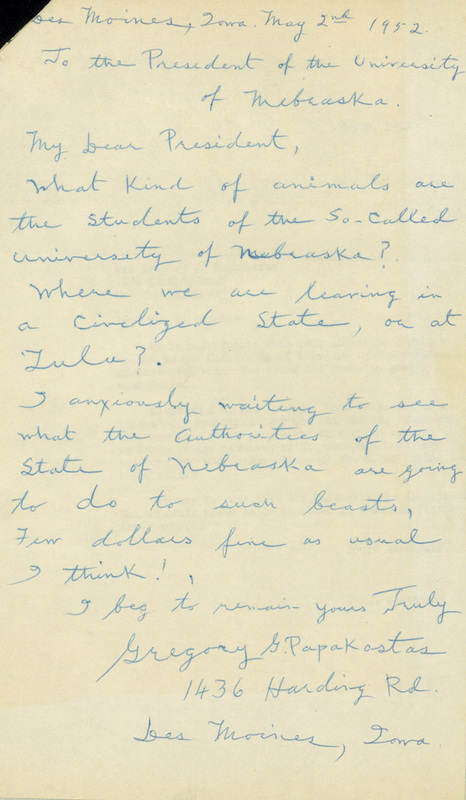 Des Moines, Iowa. May 2nd 1952.
To the President of the University
of Nebraska.
My Dear President,
What Kind of animals are
the students of the So-Called
Universety of Nebraska?
Where we are leaving in
a Civelized State, or at
Zulu?.
I anxiously waiting to see
what the Authoritees of the
State of Nebraska are going
to do to such beasts,
Few dollars fine as usual
I think!,
I beg to remain yours Truly
Gregory G. Papakostas
1436 Harding Rd.
Des Moines, Iowa